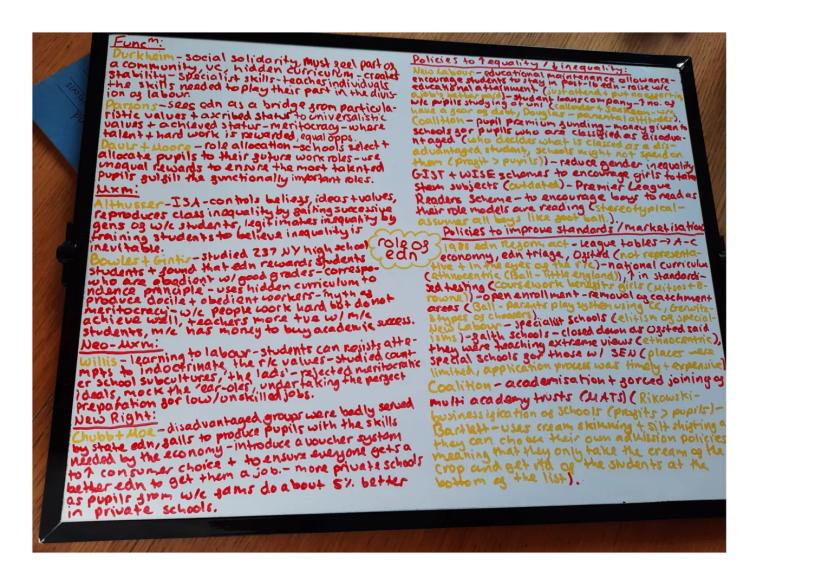 Funcᵐ:
Durkheim - social solidarity, must feel part of
a community, v.c, hidden curriculum - creates
stability - specialist skills - teaches individuals
the skills needed to play their part in the divis-
ion of labour.
Parsons - sees edn as a bridge from particula-
ristic values + ascribed status to universalistic
values + achieved status - meritocracy - where
talent + hard work is rewarded, equal opps.
Davis + Moore - role allocation - schools select +
allocate pupils to their future work roles - use
unequal rewards to ensure the most talented
pupils fulfill the functionally important roles.
Mxm:
Althusser - ISA - controls beliefs, ideas + values,
reproduces class inequality by failing successive
gens of w/c students, legitimates inequality by
training students to believe inequality is
inevitable.
Bowles + Gintis - studied 237 NY high school
students + found that edn rewards students
who are obedient w/ good grades - correspo-
ndence principle - uses hidden curriculum to
produce docile + obedient workers - myth of
meritocracy - w/c people work hard but do not
achieve well, teachers more +ve w/ m/c
students, m/c has money to buy academic success.
Neo-Mxm:
Willis - learning to labour - students can resists atte-
mpts to indoctrinate the r/c values - studied count-
er school subcultures, 'the lads' - rejected meritocratic
ideals, mock the 'ear-oles', undertaking the perfect
preparation for low/unskilled jobs.
New Right:
Chubb + Moe - disadvantaged groups were badly served
by state edn, fails to produce pupils with the skills
needed by the economy - introduce a voucher system
to ↑ consumer choice + to ensure everyone gets a
better edn to get them a job. - more private schools
as pupils from w/c fams do about 5% better
in private schools.
role of
edn
Policies to ↑ equality / ↓ inequality:
New Labour - educational maintenance allowance -
encourage students to stay in post-16 edn - raise w/c
educational attainment (just attend, but no
) - student loans company - ↑ no. of
w/c pupils studying at uni (Callender + Jackson - w/c
have a fear of debt, Douglas - parental attitudes).
Coalition - pupil premium funding - money given to
schools for pupils who are classified as disadva-
ntaged (who decides what is classed as a dis-
advantaged student, schools might not spend on
them (profit > pupils)) - reduce gender inequality
GIST + WISE schemes to encourage girls to take
stem subjects (outdated) - Premier League
Readers Scheme - to encourage boys to read as
their role models are reading (stereotypical -
assumes all boys like football).
Policies to improve standards / marketisation
1988 edn Reform act - league tables → A-C
economy, edn triage, Ofsted (not representa-
tive + in the eyes of the r/c) - national curriculum
(ethnocentric (Ball - little england)), ↑ in standardi-
sed testing (coursework benefits girls (Mitsos + B-
rowne)) - open enrollment - removal of catchment
areas (Ball - parents play system using CC, Gewirtz -
3 types of choosers).
New Labour - specialist schools (elitism of special-
isms) - faith schools - closed down as Ofsted said
they were teaching extreme views (ethnocentric),
special schools for those w/ SEN (places were
limited, application process was timely + expensive)
Coalition - academisation + forced joining of
multi academy trusts (MATS) (Rikowski -
businessification of schools (profits > pupils) -
Bartlett - uses cream skimming + silt shifting as
they can choose their own admission policies
meaning that they only take the cream of the
crop and get rid of the students at the
bottom of the list).